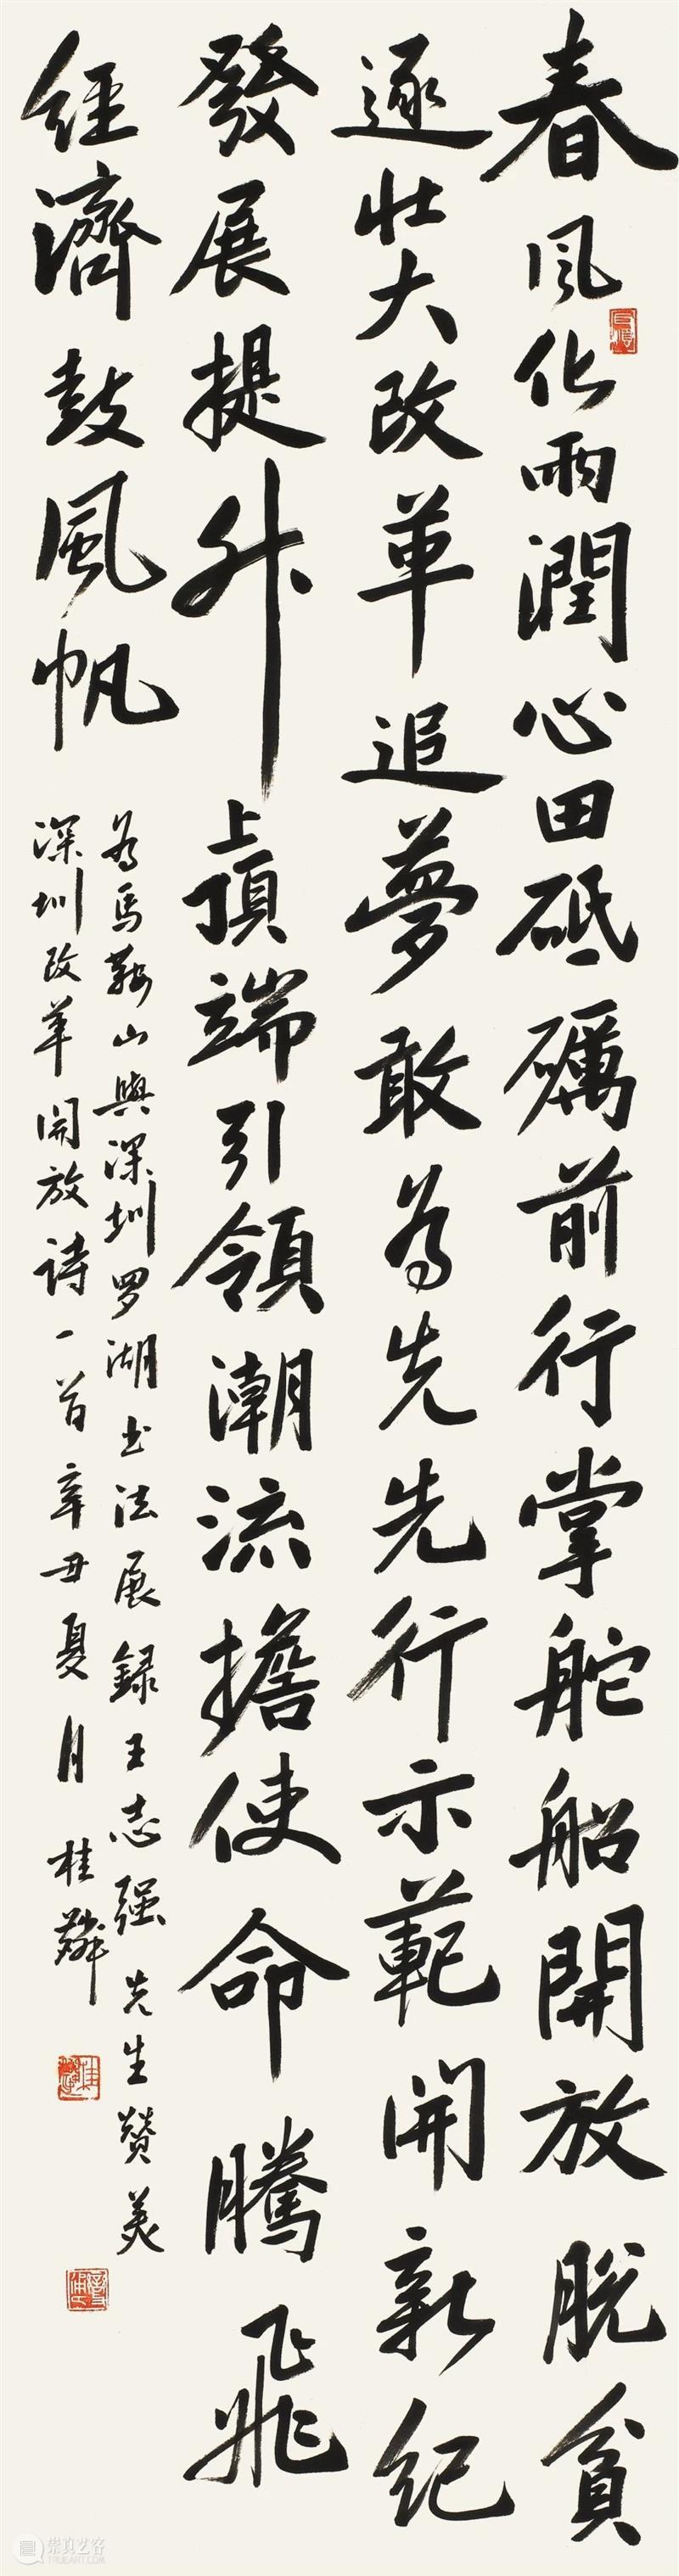 春风化雨潤心田砥礪前行掌舵船開放脫貧
逐壯大改革追夢敢為先先行示範開新紀
發展提升上頂端引領潮流擔使命騰飛
經濟鼓風帆
為馬鞍山與深圳罗湖书法展録王志强先生贊美
深圳改革開放詩一首辛丑夏月桂
崇真艺客
TRUEART.COM